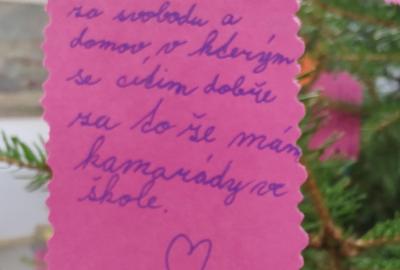 za svobodu a
domov, v kterým
se cítím dobře
za to že mám
kamarády ve
škole.